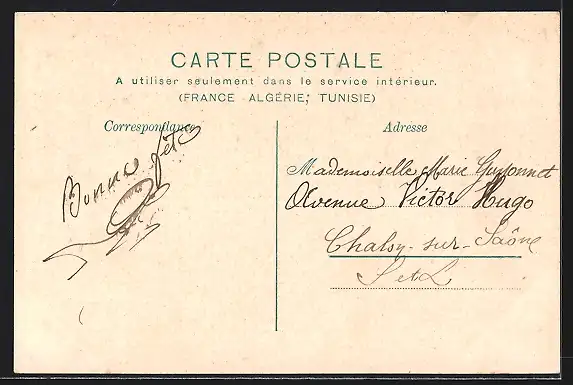 CARTE POSTALE
A utiliser seulement dans le service intérieur.
(FRANCE ALGÉRIE, TUNISIE)
Correspondance
Bonne fête
Adresse
Mademoiselle Marie Guyonnet
Avenue Victor Hugo
Chalon-sur-Saône
S et L